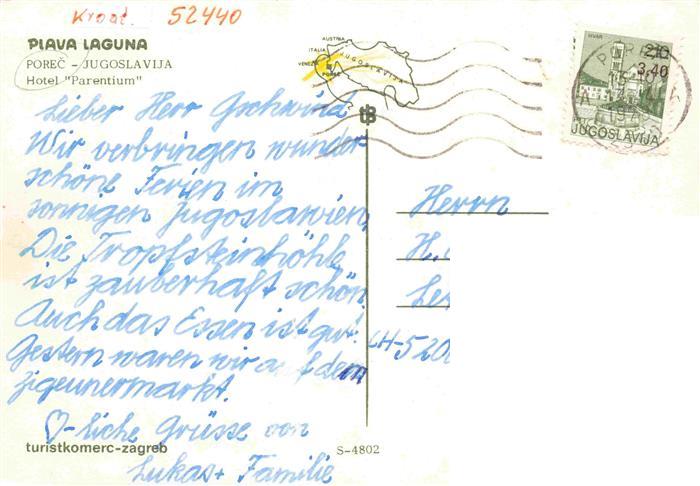 Kroat. 52440
PLAVA LAGUNA
POREČ – JUGOSLAVIJA
Hotel "Parentium"
AUSTRIA
ITALIA
VENEZIA
JUGOSLAVIJA
POREČ
HVAR
2,10
3,40
JUGOSLAVIJA
Lieber Herr Gschwind
Wir verbringen wunder
schöne Ferien im
sonnigen Jugoslawien,
Die Tropfsteinhöhle
ist zauberhaft schön.
Auch das Essen ist gut!
Gestern waren wir auf dem
Zigeunermarkt.
♡-liche Grüsse von
Lukas + Familie
Herrn
H.
CH-520
turistkomerc-zagreb
S-4802